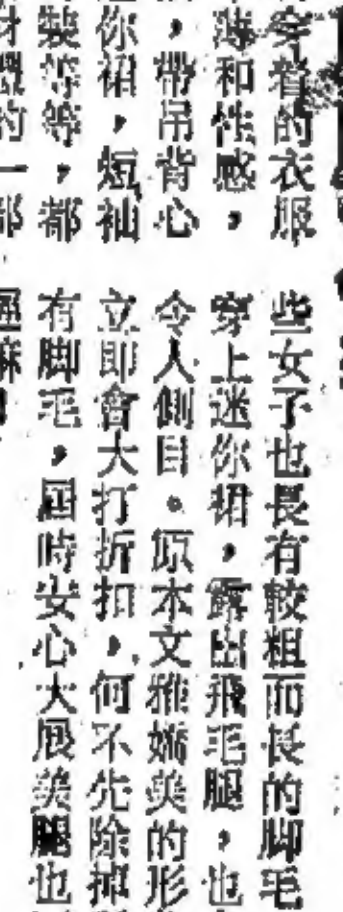 穿着的衣服
薄和性感，
，帶吊背心
你裙，短袖
裝等等，都
的一部
些女子也長有較粗而長的脚毛
穿上迷你裙，露出飛毛腿，也
令人側目。原本文雅嬌美的形
立即會大打折扣，何不先除掉
有脚毛，屆時安心大展美腿也